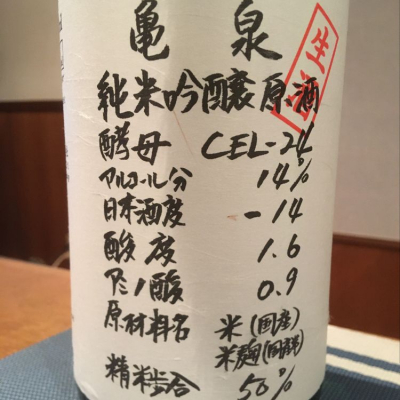 亀泉
純米吟醸原酒
酵母 CEL-24
アルコール分 14%
日本酒度 -14
酸度 1.6
アミノ酸 0.9
原材料名 米(国産)
米麹(国産米)
精米歩合 50%
生